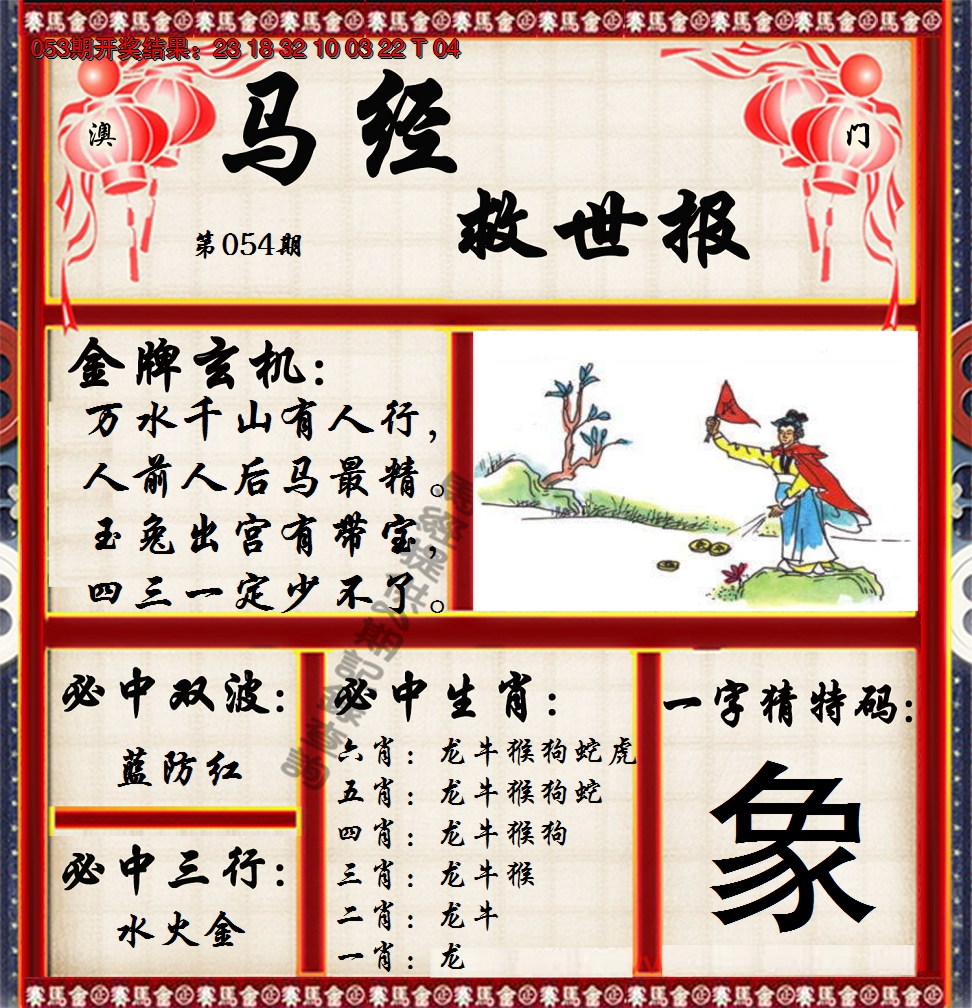 赛馬會
053期开奖结果：23 18 32 10 03 22 T 04
澳
门
马经
救世报
第054期
金牌玄机：
万水千山有人行，
人前人后马最精。
玉兔出宫有带宝，
四三一定少不了。
必中双波：
蓝防红
必中三行：
水火金
必中生肖：
六肖：龙牛猴狗蛇虎
五肖：龙牛猴狗蛇
四肖：龙牛猴狗
三肖：龙牛猴
二肖：龙牛
一肖：龙
一字猜特码：
象